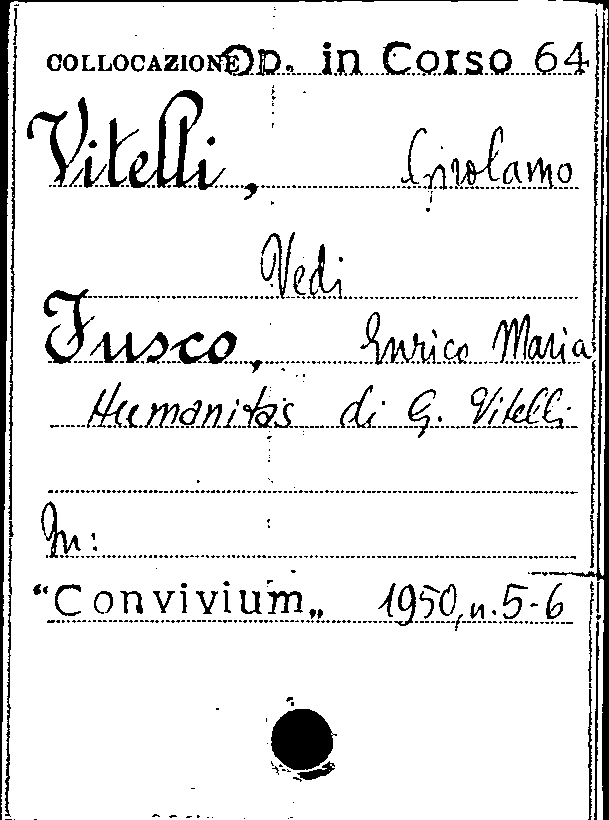 COLLOCAZIONE Op. in Corso 64
Vitelli, Girolamo
Vedi
Fusco, Enrico Maria
Humanitas di G. Vitelli
In:
“Convivium„ 1950, n. 5-6